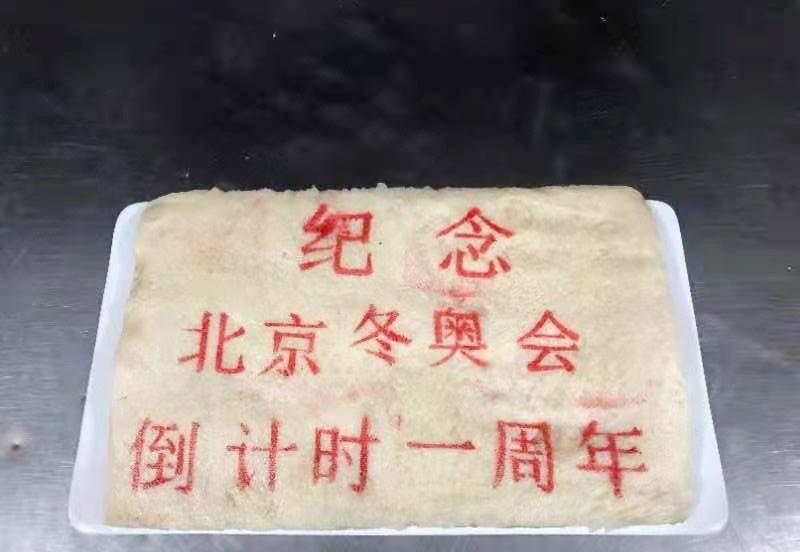 纪念
北京冬奥会
倒计时一周年